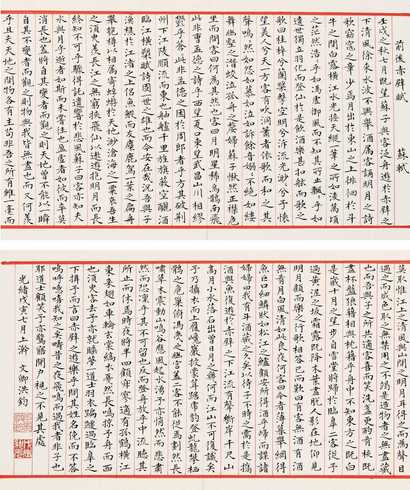 前後赤壁賦 蘇軾
壬戌之秋七月既望蘇子與客泛舟遊於赤壁之
下清風徐來水波不興舉酒屬客誦明月之詩
歌窈窕之章少焉月出於東山之上徘徊於斗
牛之間白露橫江水光接天縱一葦之所如凌萬頃
之茫然浩浩乎如馮虛御風而不知其所止飄飄乎如
遺世獨立羽化而登仙於是飲酒樂甚扣舷而歌之
歌曰桂棹兮蘭槳擊空明兮泝流光渺渺兮予懷
望美人兮天一方客有吹洞簫者倚歌而和之其
聲嗚嗚然如怨如慕如泣如訴餘音嫋嫋不絕如縷
舞幽壑之潛蛟泣孤舟之嫠婦蘇子愀然正襟危
坐而問客曰何為其然也客曰月明星稀烏鵲南
飛此非曹孟德之詩乎西望夏口東望武昌山川相繆
鬱乎蒼蒼此非孟德之困於周郎者乎方其破荊
州下江陵順流而東也舳艫千里旌旗蔽空釃酒
臨江橫槊賦詩固一世之雄也而今安在哉況吾與子
漁樵於江渚之上侶魚蝦而友麋鹿駕一葉之扁舟
舉匏樽以相屬寄蜉蝣於天地渺滄海之一粟哀吾生
之須臾羨長江之無窮挾飛仙以遨遊抱明月而長
終知不可乎驟得託遺響於悲風蘇子曰客亦知夫
水與月乎逝者如斯而未嘗往也盈虛者如彼而卒莫
消長也蓋將自其變者而觀之則天地曾不能以一瞬
自其不變者而觀之則物與我皆無盡也而又何羨
乎且夫天地之間物各有主苟非吾之所有雖一毫而
莫取惟江上之清風與山間之明月耳得之而為聲目
遇之而成色取之無禁用之不竭是造物者之無盡藏
也而吾與子之所共適客喜而笑洗盞更酌肴核既
盡杯盤狼籍相與枕藉乎舟中不知東方之既白
是歲十月之望步自雪堂將歸於臨皋二客從予
過黃泥之坂霜露既降木葉盡脫人影在地仰見
明月顧而樂之行歌相答已而歎曰有客無酒有酒
無肴月白風清如此良夜何客曰今者薄暮舉網得
魚巨口細鱗狀如松江之鱸顧安所得酒乎歸而謀諸
婦婦曰我有斗酒藏之久矣以待子不時之需於是攜
酒與魚復遊於赤壁之下江流有聲斷岸千尺山
高月小水落石出曾日月之幾何而江山不可復識矣
予乃攝衣而上履巉巖披蒙茸踞虎豹登虬龍攀栖
鶻之危巢俯馮夷之幽宮蓋二客不能從焉劃然長
嘯草木震動山鳴谷應風起水涌予亦悄然而悲肅
然而恐凜乎其不可留也反而登舟放乎中流聽其
所止而休焉時夜將半四顧寂寥適有孤鶴橫江
東來翅如車輪玄裳縞衣戛然長鳴掠予舟而西
也須臾客去予亦就睡夢一道士羽衣蹁躚過臨皋之
下揖予而言曰赤壁之遊樂乎問其姓名俛而不答
嗚呼噫嘻我知之矣疇昔之夜飛鳴而過我者非子也
耶道士顧笑予亦驚寤開戶視之不見其處
光緒戊寅七月上澣 文卿洪鈞